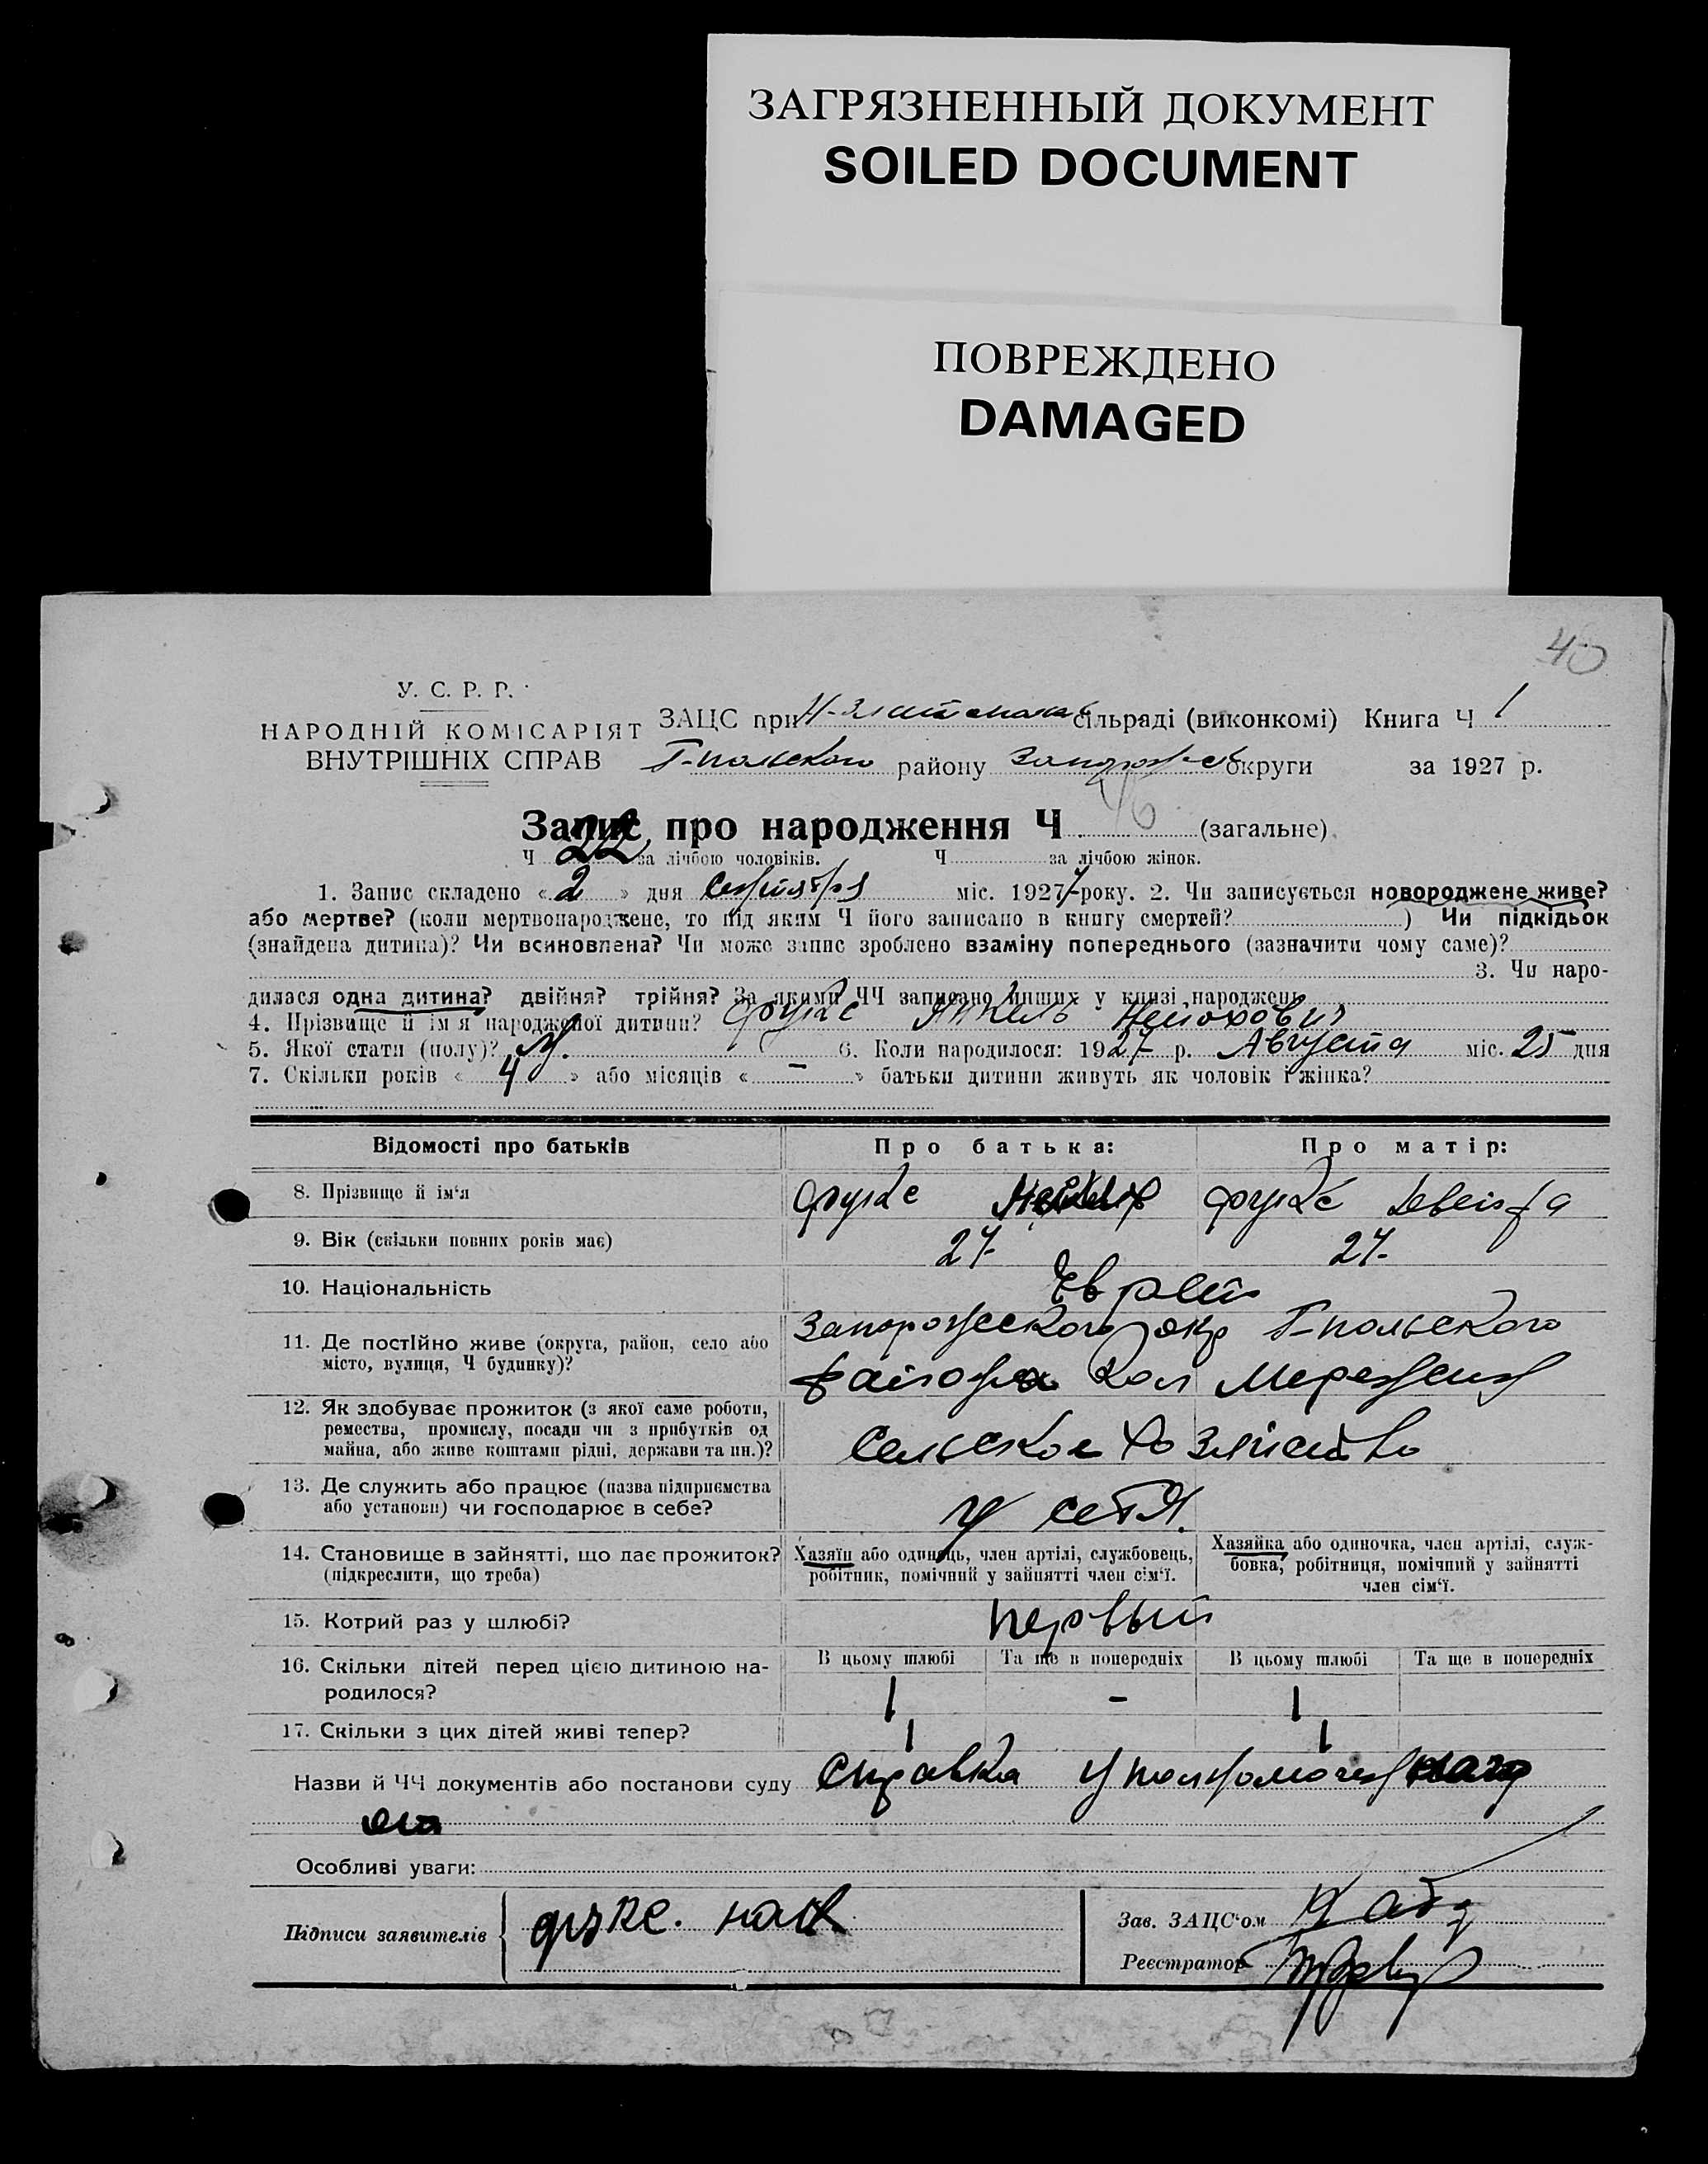 ЗАГРЯЗНЕННЫЙ ДОКУМЕНТ
SOILED DOCUMENT
ПОВРЕЖДЕНО
DAMAGED
40
У. С. Р. Р.
НАРОДНІЙ КОМІСАРІЯТ
ВНУТРІШНІХ СПРАВ
ЗАЦС при сільраді (виконкомі) Книга Ч 1
Г-польского району округи за 1927 р.
Запис про народження Ч 46 (загальне)
Ч 22 за лічбою чоловіків. Ч за лічбою жінок.
1. Запис складено « 2 » дня Сентября міс. 1927 року. 2. Чи записується новороджене живе?
або мертве? (коли мертвонароджене, то під яким Ч його записано в книгу смертей? ) Чи підкідьок
(знайдена дитина)? Чи всиновлена? Чи може запис зроблено взаміну попереднього (зазначити чому саме)?
3. Чи наро-
дилася одна дитина? двійня? трійня? За якими ЧЧ записано инших у книзі народжень
4. Прізвище й ім'я народженої дитини? Фукс
5. Якої стати (полу)? М. 6. Коли народилося: 1927 р. Августа міс. 25 дня
7. Скільки років « 4 » або місяців « - » батьки дитини живуть як чоловік і жінка?
Відомості про батьків Про батька: Про матір:
8. Прізвище й ім'я Фукс Фукс
9. Вік (скільки повних років має) 27 27
10. Національність Евреи
11. Де постійно живе (округа, район, село або
місто, вулиця, Ч будинку)?
Запорожского окр Г-польского
района кол
12. Як здобуває прожиток (з якої саме роботи,
ремества, промислу, посади чи з прибутків од
майна, або живе коштами рідні, держави та ин.)?
Сельское хозяйство
13. Де служить або працює (назва підприємства
або установи) чи господарює в себе?
У себя.
14. Становище в зайнятті, що дає прожиток?
(підкреслити, що треба)
Хазяїн або одинець, член артілі, службовець,
робітник, помічний у зайнятті член сім'ї.
Хазяйка або одиночка, член артілі, служ-
бовка, робітниця, помічний у зайнятті
член сім'ї.
15. Котрий раз у шлюбі? Первый
16. Скільки дітей перед цією дитиною на-
родилося?
В цьому шлюбі Та ще в попередніх В цьому шлюбі Та ще в попередніх
1 - 1
17. Скільки з цих дітей живі тепер? 1 1
Назви й ЧЧ документів або постанови суду Справка
Особливі уваги:
Підписи заявителів
Зав. ЗАЦС'ом
Реєстратор